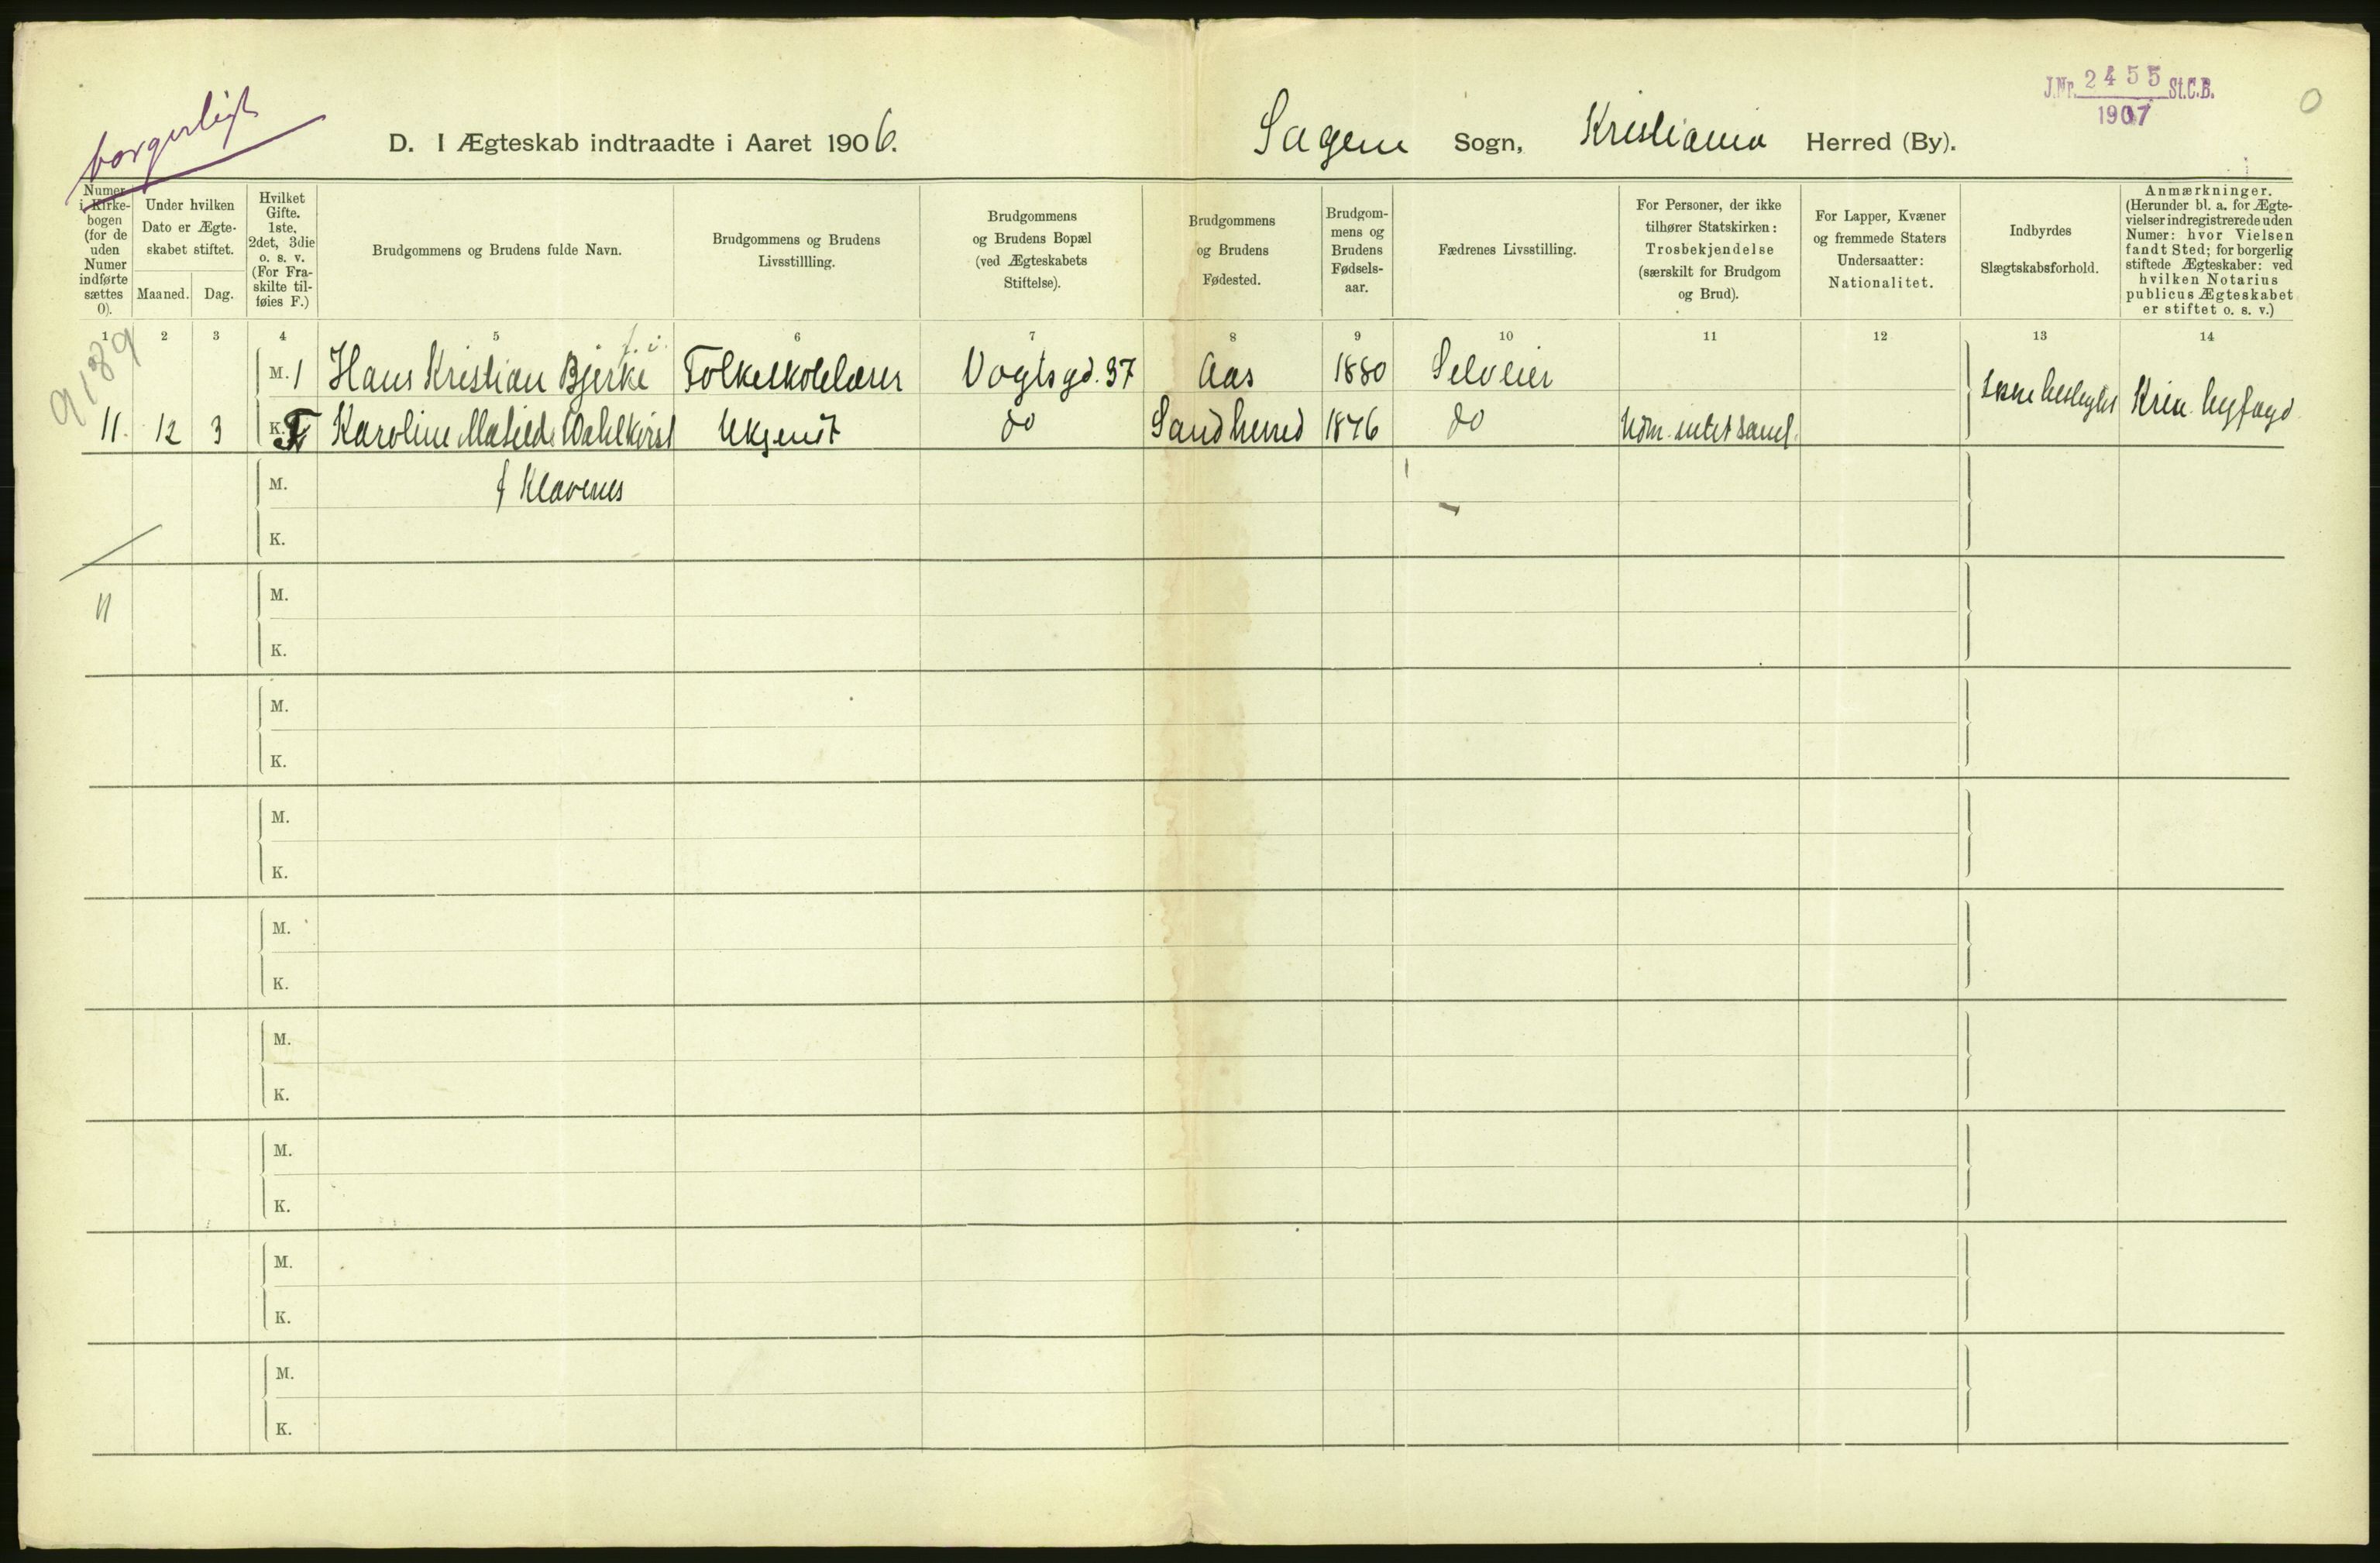 borgerligt
D. I Ægteskab indtraadte i Aaret 1906.
Sagene Sogn, Kristiania Herred (By).
J.Nr. 2455 St.C.B.
1907
0
Numer i Kirke-bogen (for de uden Numer indførte sættes 0).
Under hvilken Dato er Ægte-skabet stiftet.
Maaned. Dag.
Hvilket Gifte. 1ste, 2det, 3die o. s. v. (For Fra-skilte til-føies F.)
Brudgommens og Brudens fulde Navn.
Brudgommens og Brudens Livsstillling.
Brudgommens og Brudens Bopæl (ved Ægteskabets Stiftelse).
Brudgommens og Brudens Fødested.
Brudgom-mens og Brudens Fødsels-aar.
Fædrenes Livsstilling.
For Personer, der ikke tilhører Statskirken: Trosbekjendelse (særskilt for Brudgom og Brud).
For Lapper, Kvæner og fremmede Staters Undersaatter: Nationalitet.
Indbyrdes Slægtskabsforhold.
Anmærkninger. (Herunder bl. a. for Ægte-vielser indregistrerede uden Numer: hvor Vielsen fandt Sted; for borgerlig stiftede Ægteskaber: ved hvilken Notarius publicus Ægteskabet er stiftet o. s. v.)
1 2 3 4 5 6 7 8 9 10 11 12 13 14
9189
M. 1 Hans Kristian Bjerke Folkeskolelærer Vogtsgd. 37 Aas 1880 Selveier
Ikke beslegtet Kria. byfogd
11. 12 3 K. F Karoline Matilde Wahlkvist Ukjendt do Sandherred 1876 do
M. f Klavenes
K.
11
M.
K.
M.
K.
M.
K.
M.
K.
M.
K.
M.
K.
M.
K.
M.
K.